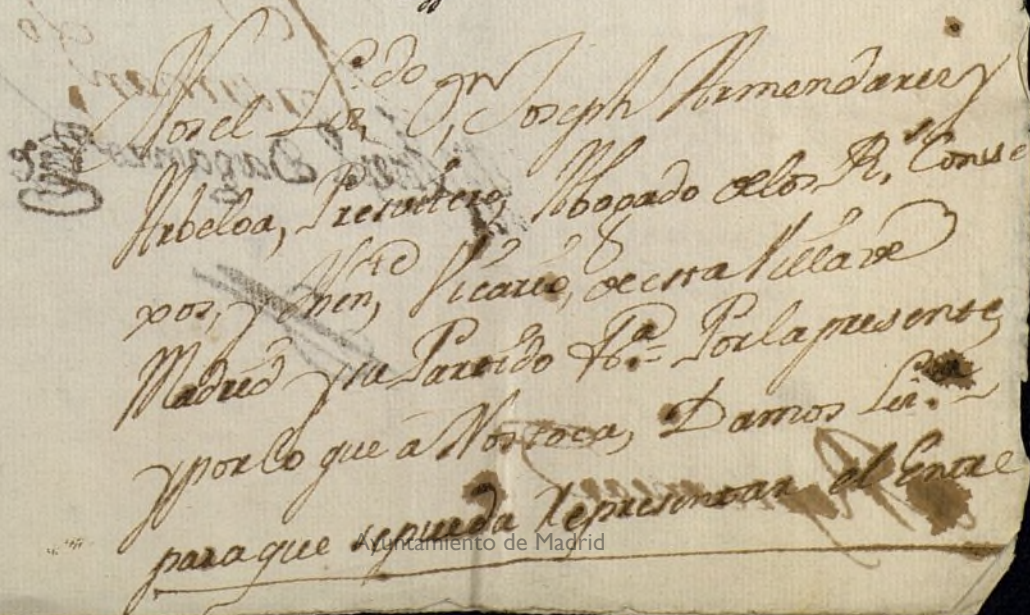 Nos el Liz.do Dn Joseph Armendariz y
Arbeloa, Presvitero, Abogado delos R.s Conse
xos, y Then.te Vicario, de esta Villa de
Madrid y su Partido &.a = Por la presente,
y por lo que à Nos toca, Damos Liz.a
para que se pueda representar el Entre
Ayuntamiento de Madrid